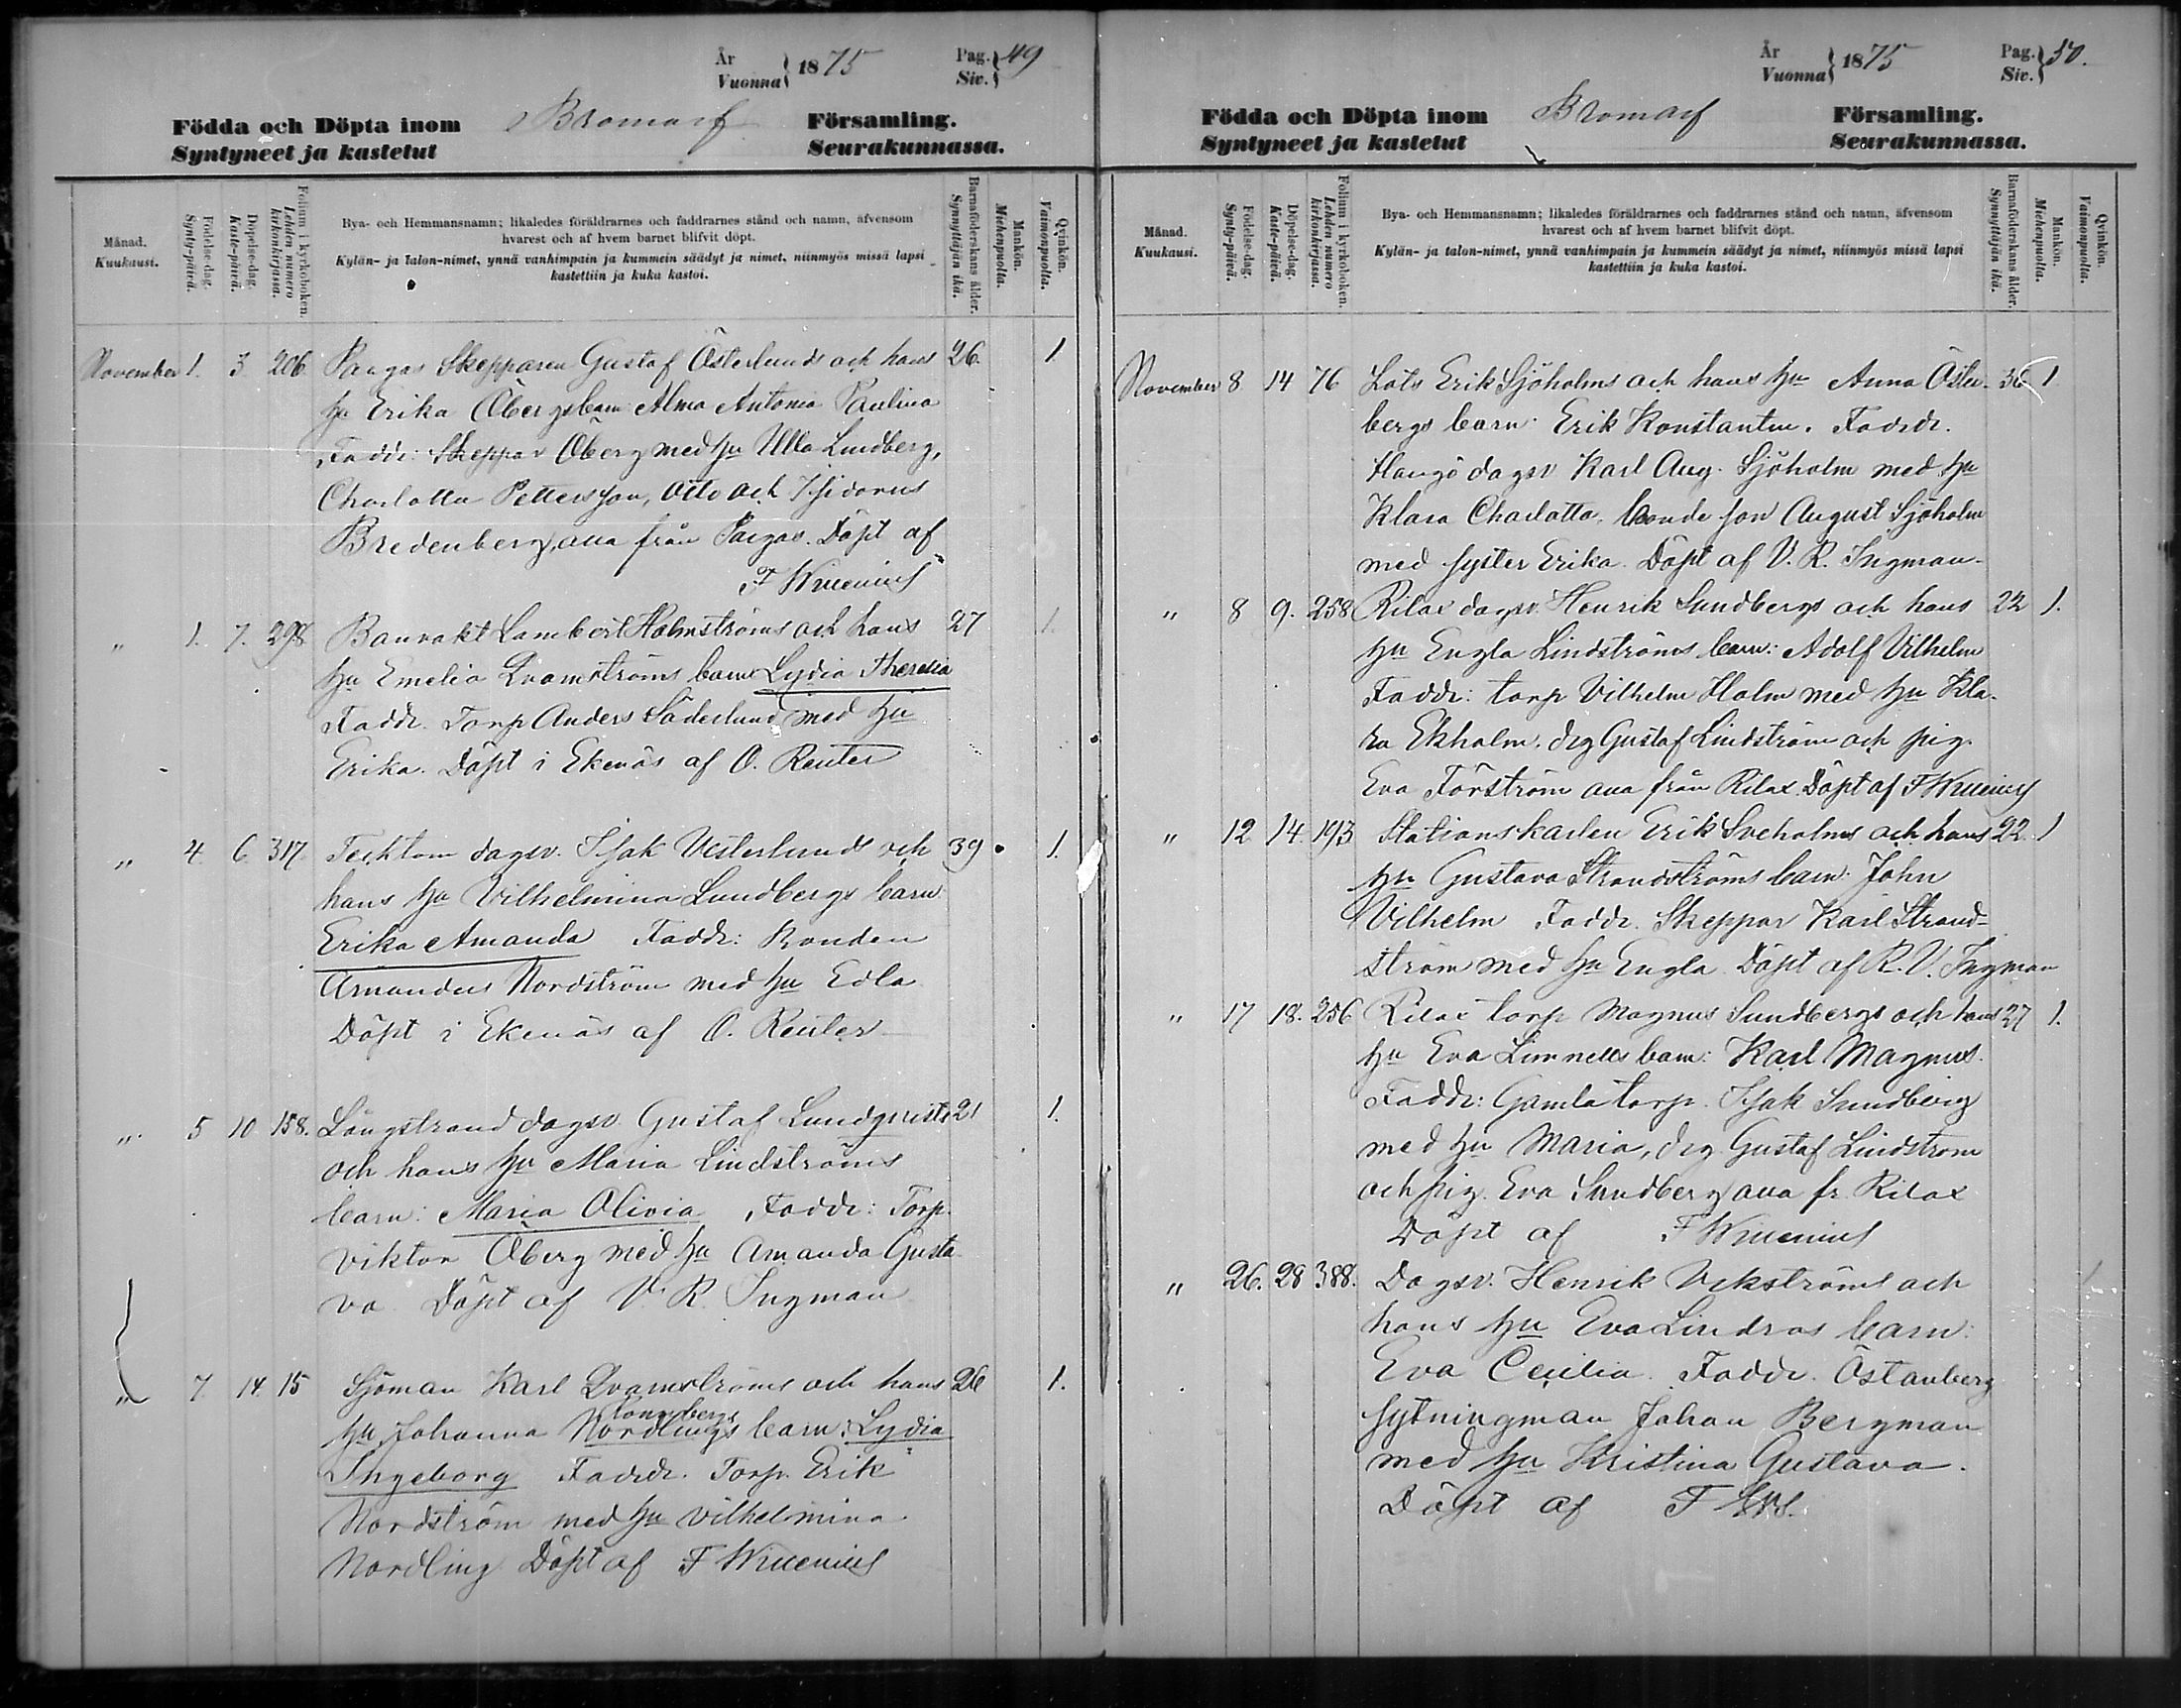 År
Vuonna } 1875 Pag. Siv. } 49
Födda och Döpta inom Bromarf Församling.
Syntyneet ja kastetut Seurakunnassa.
Månad. Kuukausi.
Födelse-dag. Synty-päivä.
Döpelse-dag. Kaste-päivä.
Folium i kyrkoboken. Lehden numero kirkonkirjassa.
Bya- och Hemmansnamn; likaledes föräldrarnes och faddrarnes stånd och namn, äfvensom
hvarest och af hvem barnet blifvit döpt.
Kylän- ja talon-nimet, ynnä vanhimpain ja kummein säädyt ja nimet, niinmyös missä lapsi
kastettiin ja kuka kastoi.
Barnaföderskans ålder. Synnyttäjän ikä.
Mankön. Miehenpuolta.
Qvinkön. Vaimonpuolta.
November 1. 3 206. Pargas Skepparen Gustaf Österlunds och hans 26. 1
hu Erika Öbergs barn Alma Antonia Paulina
Faddr: Skeppar Öberg med hu Ulla Lindberg,
Charlotta Pettersson, Otto och Isidorus
Bredenberg, alla från Pargas. Döpt af
F Wruenius
" 1. 7. 298 Banvakt Lambert Holmströms och hans 27 1.
hu Emelia Qvarnströms barn Lydia Theresia
Faddr. Torp Anders Söderlund med hu
Erika. Döpt i Ekenäs af O. Reuter
" 4 6 317 Tecktom dagsv. Isak Vesterlunds och 39 1.
hans hu Vilhelmina Lundbergs barn
Erika Amanda Faddr: Bonden
Amandus Nordström med hu Edla
Döpt i Ekenäs af O. Reuter
" 5 10 158. Långstrand dagsv Gustaf Lundqvists 21 1.
och hans hu Maria Lindströms
barn: Maria Olivia Faddr: Torp.
Viktor Öberg med hu Amanda Gusta
va Döpt af V. R. Ingman
" 7 14 15 Sjöman Karl Qvarnströms och hans 26 1.
hu Johanna Nordlings barn: Lydia
Ingeborg Faddr. Torp. Erik
Nordström med hu Vilhelmina
Nordling Döpt af F Wruenius
År
Vuonna } 1875 Pag. Siv. } 50.
Födda och Döpta inom Bromarf Församling.
Syntyneet ja kastetut Seurakunnassa.
Månad. Kuukausi.
Födelse-dag. Synty-päivä.
Döpelse-dag. Kaste-päivä.
Folium i kyrkoboken. Lehden numero kirkonkirjassa.
Bya- och Hemmansnamn; likaledes föräldrarnes och faddrarnes stånd och namn, äfvensom
hvarest och af hvem barnet blifvit döpt.
Kylän- ja talon-nimet, ynnä vanhimpain ja kummein säädyt ja nimet, niinmyös missä lapsi
kastettiin ja kuka kastoi.
Barnaföderskans ålder. Synnyttäjän ikä.
Mankön. Miehenpuolta.
Qvinkön. Vaimonpuolta.
November 8 14 76 Lots Erik Sjöholms och hans hu Anna Öster- 36 1
bergs barn: Erik Konstantin. Faddr.
Hangö dagsv Karl Aug. Sjöholm med hu
Klara Charlotta, bonde son August Sjöholm
med syster Erika. Döpt af V. R. Ingman
" 8 9. 258 Rilax dagsv. Henrik Sundbergs och hans 22 1.
hu Engla Lindströms barn: Adolf Vilhelm
Faddr: torp Vilhelm Holm med hu Kla-
ra Ekholm. drg Gustaf Lindström och pig.
Eva Törström alla från Rilax Döpt af F Wruenius
" 12 14 193 Stationskarlen Erik Sveholms och hans 22 1
hu Gustava Strandströms barn: John
Vilhelm Faddr. Skeppar Karl Strand-
ström med hu Engla Döpt af R. V. Ingman
" 17 18. 256 Rilax torp Magnus Sundbergs och hans 27 1.
hu Eva Linnells barn: Karl Magnus
Faddr: Gamla torp. Isak Sundberg
med hu Maria, drg. Gustaf Lindström
och pig. Eva Sundberg alla fr. Rilax
Döpt af F Wruenius
" 26. 28 388. Dagsv. Henrik Vekströms och 1
hans hu Eva Lindros barn:
Eva Cecilia. Faddr. Östanberg
sytningman Johan Bergman
med hu Kristina Gustava.
Döpt af F